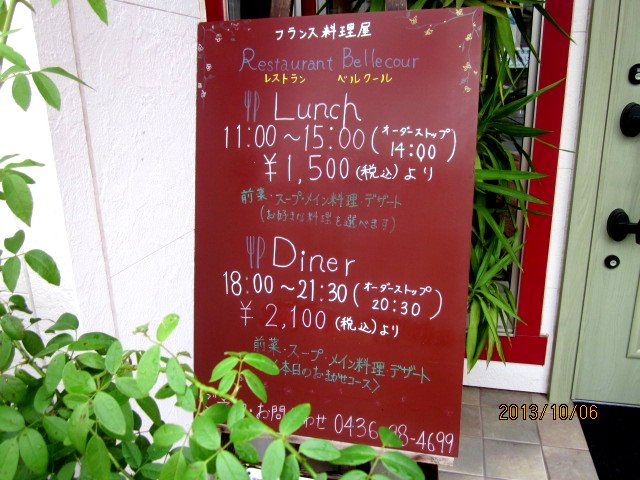 フランス料理屋
Restaurant Bellecour
レストラン ベルクール
Lunch
11:00～15:00(オーダーストップ 14:00)
¥1,500(税込)より
前菜・スープ・メイン料理 デザート
(お好きな料理を選べます)
Diner
18:00～21:30(オーダーストップ 20:30)
¥2,100(税込)より
前菜・スープ・メイン料理 デザート
本日のおまかせコース〉
・お問 わせ 0436- 8-4699
2013/10/06